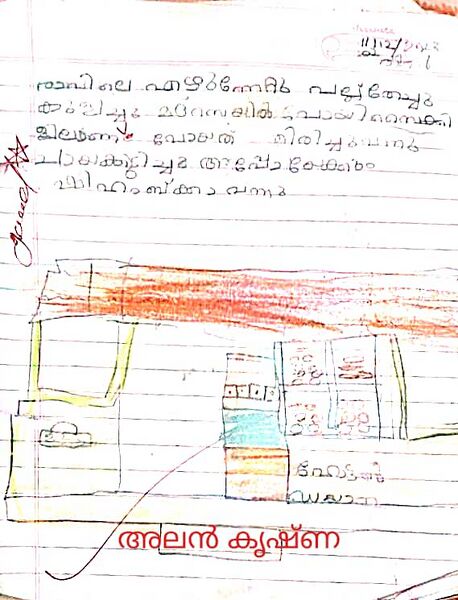 11/12/2023
രാവിലെ എഴുന്നേറ്റു പല്ലുതേച്ചു
കുളിച്ചു മദ്റസയിൽ പോയി സൈക്കി
ളിലാണ് പോയത് തിരിച്ചുവന്നു
ചായകുടിച്ചു അപ്പോഴേക്കും
ഷിഹാബ്ക്കാ വന്നു
good
ഹോട്ടൽ
അലൻ കൃഷ്ണ